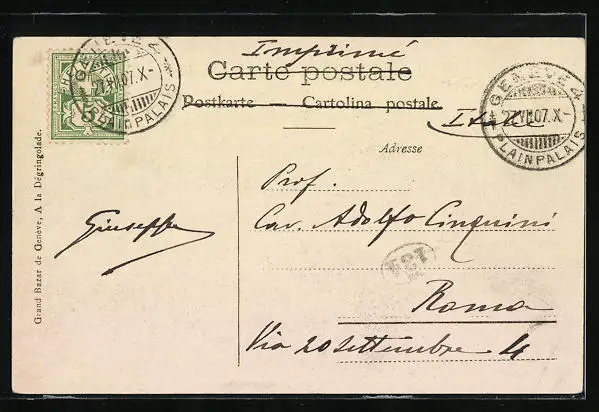 Imprimé
Carte postale
Postkarte — Cartolina postale.
Adresse
GENÈVE 4
27.VII.07.X-
PLAINPALAIS
5
GENÈVE 4
27.VII.07.X-
PLAINPALAIS
Prof.
Cav. Adolfo Cinquini
Roma
Via 20 Settembre 4
Giuseppe
Grand Bazar de Genève, A la Dégringolade.